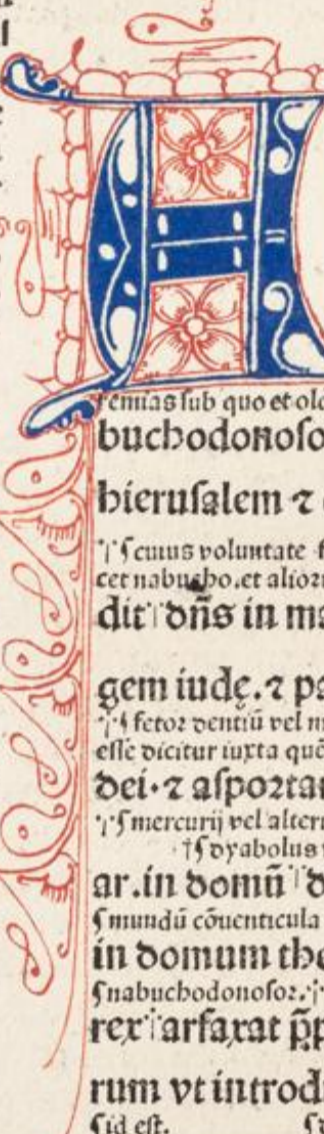 remias sub quo et
buchodonoso
hierusalem ⁊
cuius voluntate
cet nabucho.et alior
dit dn̄s in ma
gem iudę.⁊ pa
fetor dentiū vel
esse dicitur iuxta quē
dei.⁊ asportau
mercurij vel alter
dyabolus
ar.in domū d
mundū cōuenticula
in domum the
nabuchodonosor.
rex arfaxat p̄p
rum vt introd
id est.